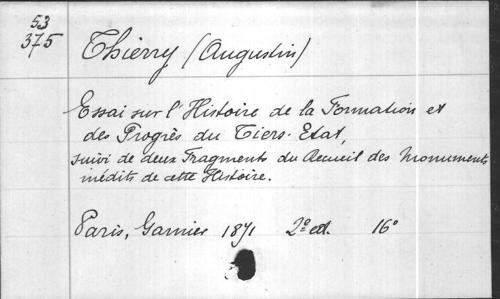 53
375
Thierry (Augustin)
Essai sur l'Histoire de la Formation et
des Progrès du Tiers-Etat,
suivi de deux Fragments du Recueil des Monuments
inédits de cette Histoire.
Paris, Garnier 1871 2e ed. 16°